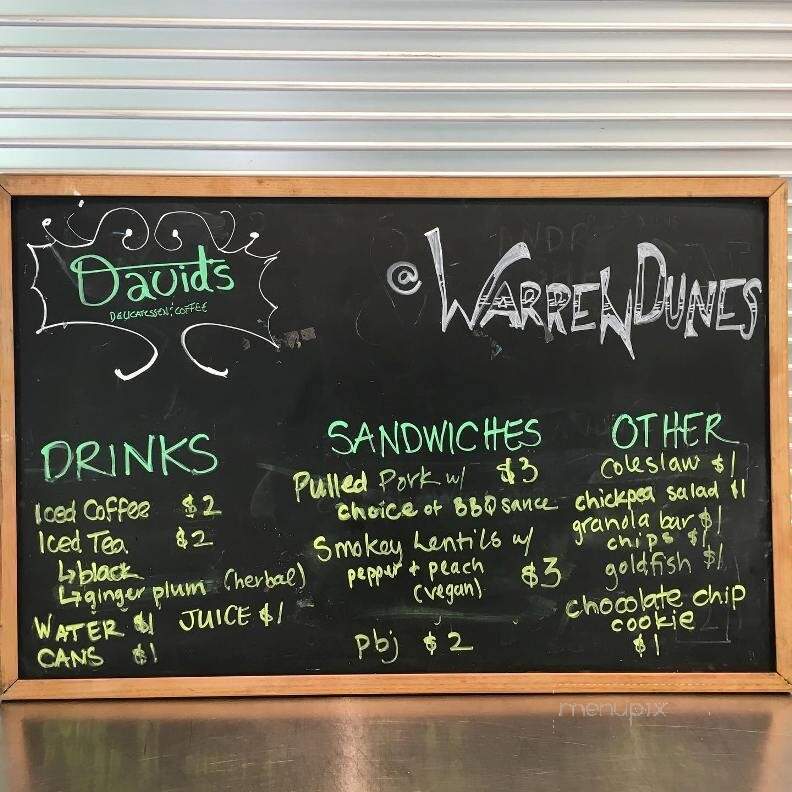 David's
DELICATESSEN & COFFEE
@ WARREN DUNES
DRINKS
Iced Coffee $2
Iced Tea $2
↳black
↳ginger plum (herbal)
WATER $1 JUICE $1
CANS $1
SANDWICHES
Pulled Pork w/ $3
choice of BBQ sauce
Smokey Lentils w/
pepper + peach $3
(vegan)
pbj $2
OTHER
coleslaw $1
chickpea salad $1
granola bar $1
chips $1
goldfish $1
chocolate chip
cookie
$1
menupix